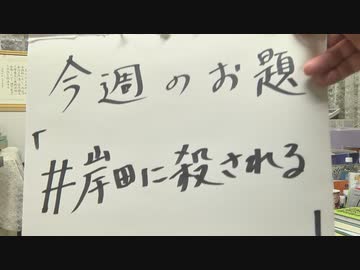 今週のお題
「
#岸田に殺される
」